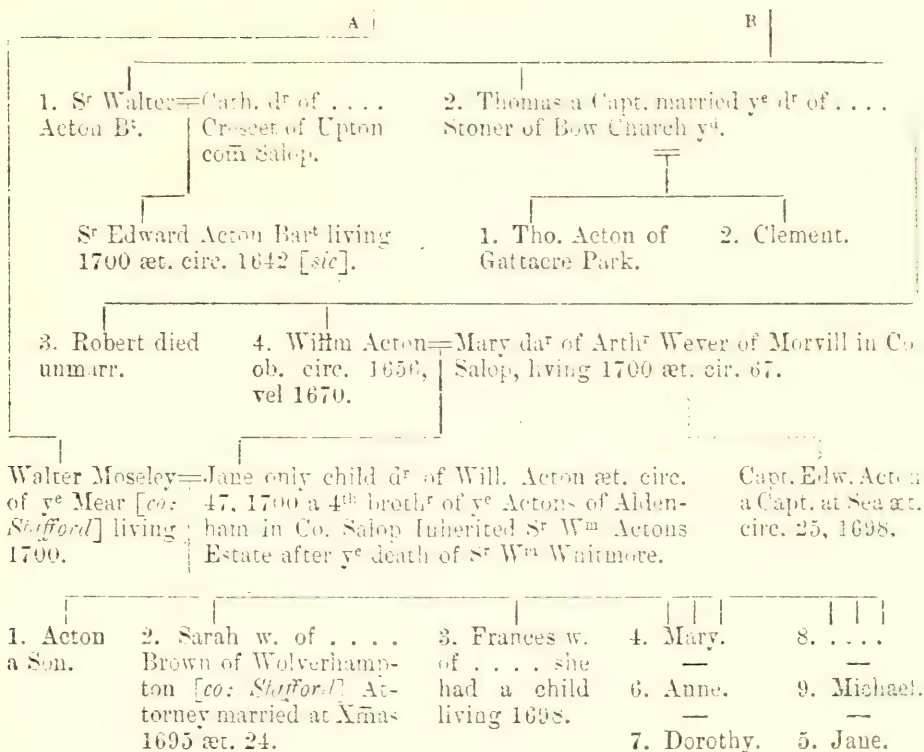 A B
1. Sʳ Walter=Cath. dʳ of . . . .
Acton Bᵗ. Cresset of Upton
com̄ Salop.
2. Thomas a Capt. married yᵉ dʳ of . . . .
Stoner of Bow Church yᵈ.
Sʳ Edward Acton Barᵗ living
1700 æt. circ. 1642 [sic].
1. Tho. Acton of
Gattacre Park.
2. Clement.
3. Robert died
unmarr.
4. Willm Acton=Mary daʳ of Arthʳ Wever of Morvill in Co
ob. circ. 1656, Salop, living 1700 æt. cir. 67.
vel 1670.
Walter Moseley=Jane only child dʳ of Will. Acton æt. circ.
of yᵉ Mear [co: 47, 1700 a 4ᵗʰ brothʳ of yᵉ Actons of Alden-
Stafford] living ham in Co. Salop Inherited Sʳ Wᵐ Actons
1700. Estate after yᵉ death of Sʳ Wᵐ Whitmore.
Capt. Edw. Acton
a Capt. at Sea æt.
circ. 25, 1698.
1. Acton
a Son.
2. Sarah w. of . . . .
Brown of Wolverhamp-
ton [co: Stafford] At-
torney married at Xm̄as
1695 æt. 24.
3. Frances w.
of . . . . she
had a child
living 1698.
4. Mary.
—
6. Anne.
—
7. Dorothy.
8. . . . .
—
9. Michael.
—
5. Jane.